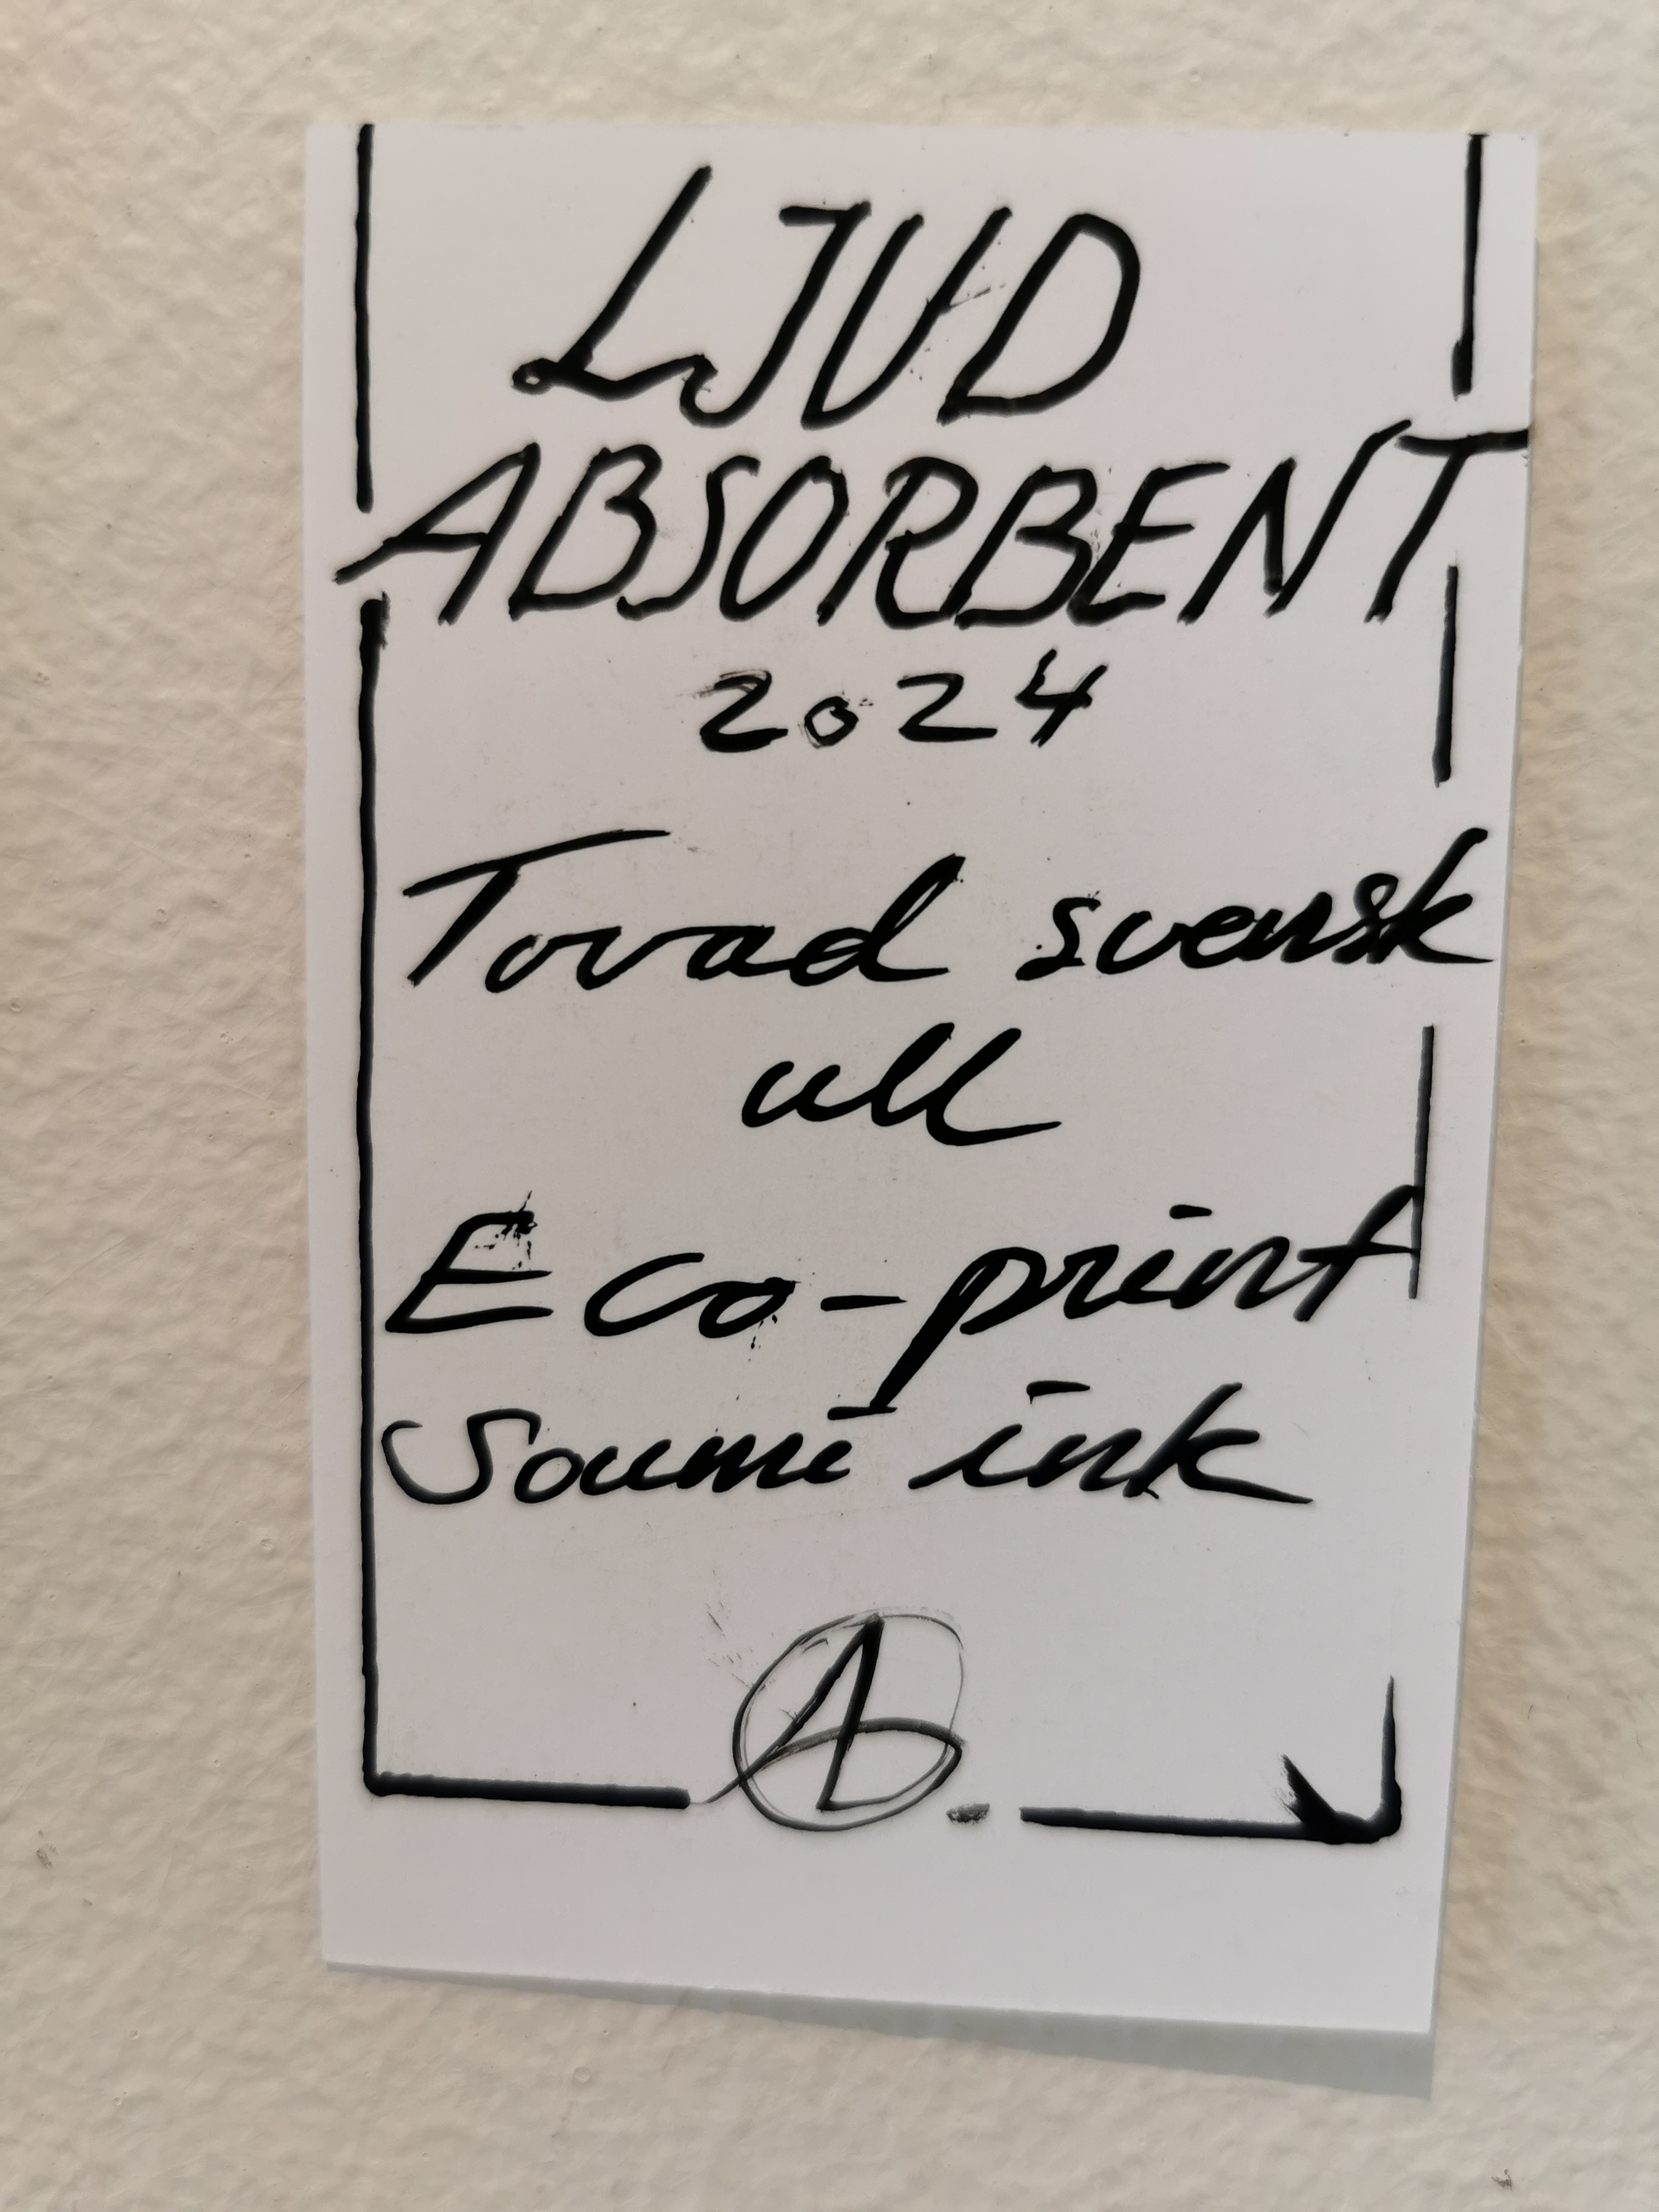 LJUD
ABSORBENT
2024
Tovad svensk
ull
Eco-print
Soumi ink
A